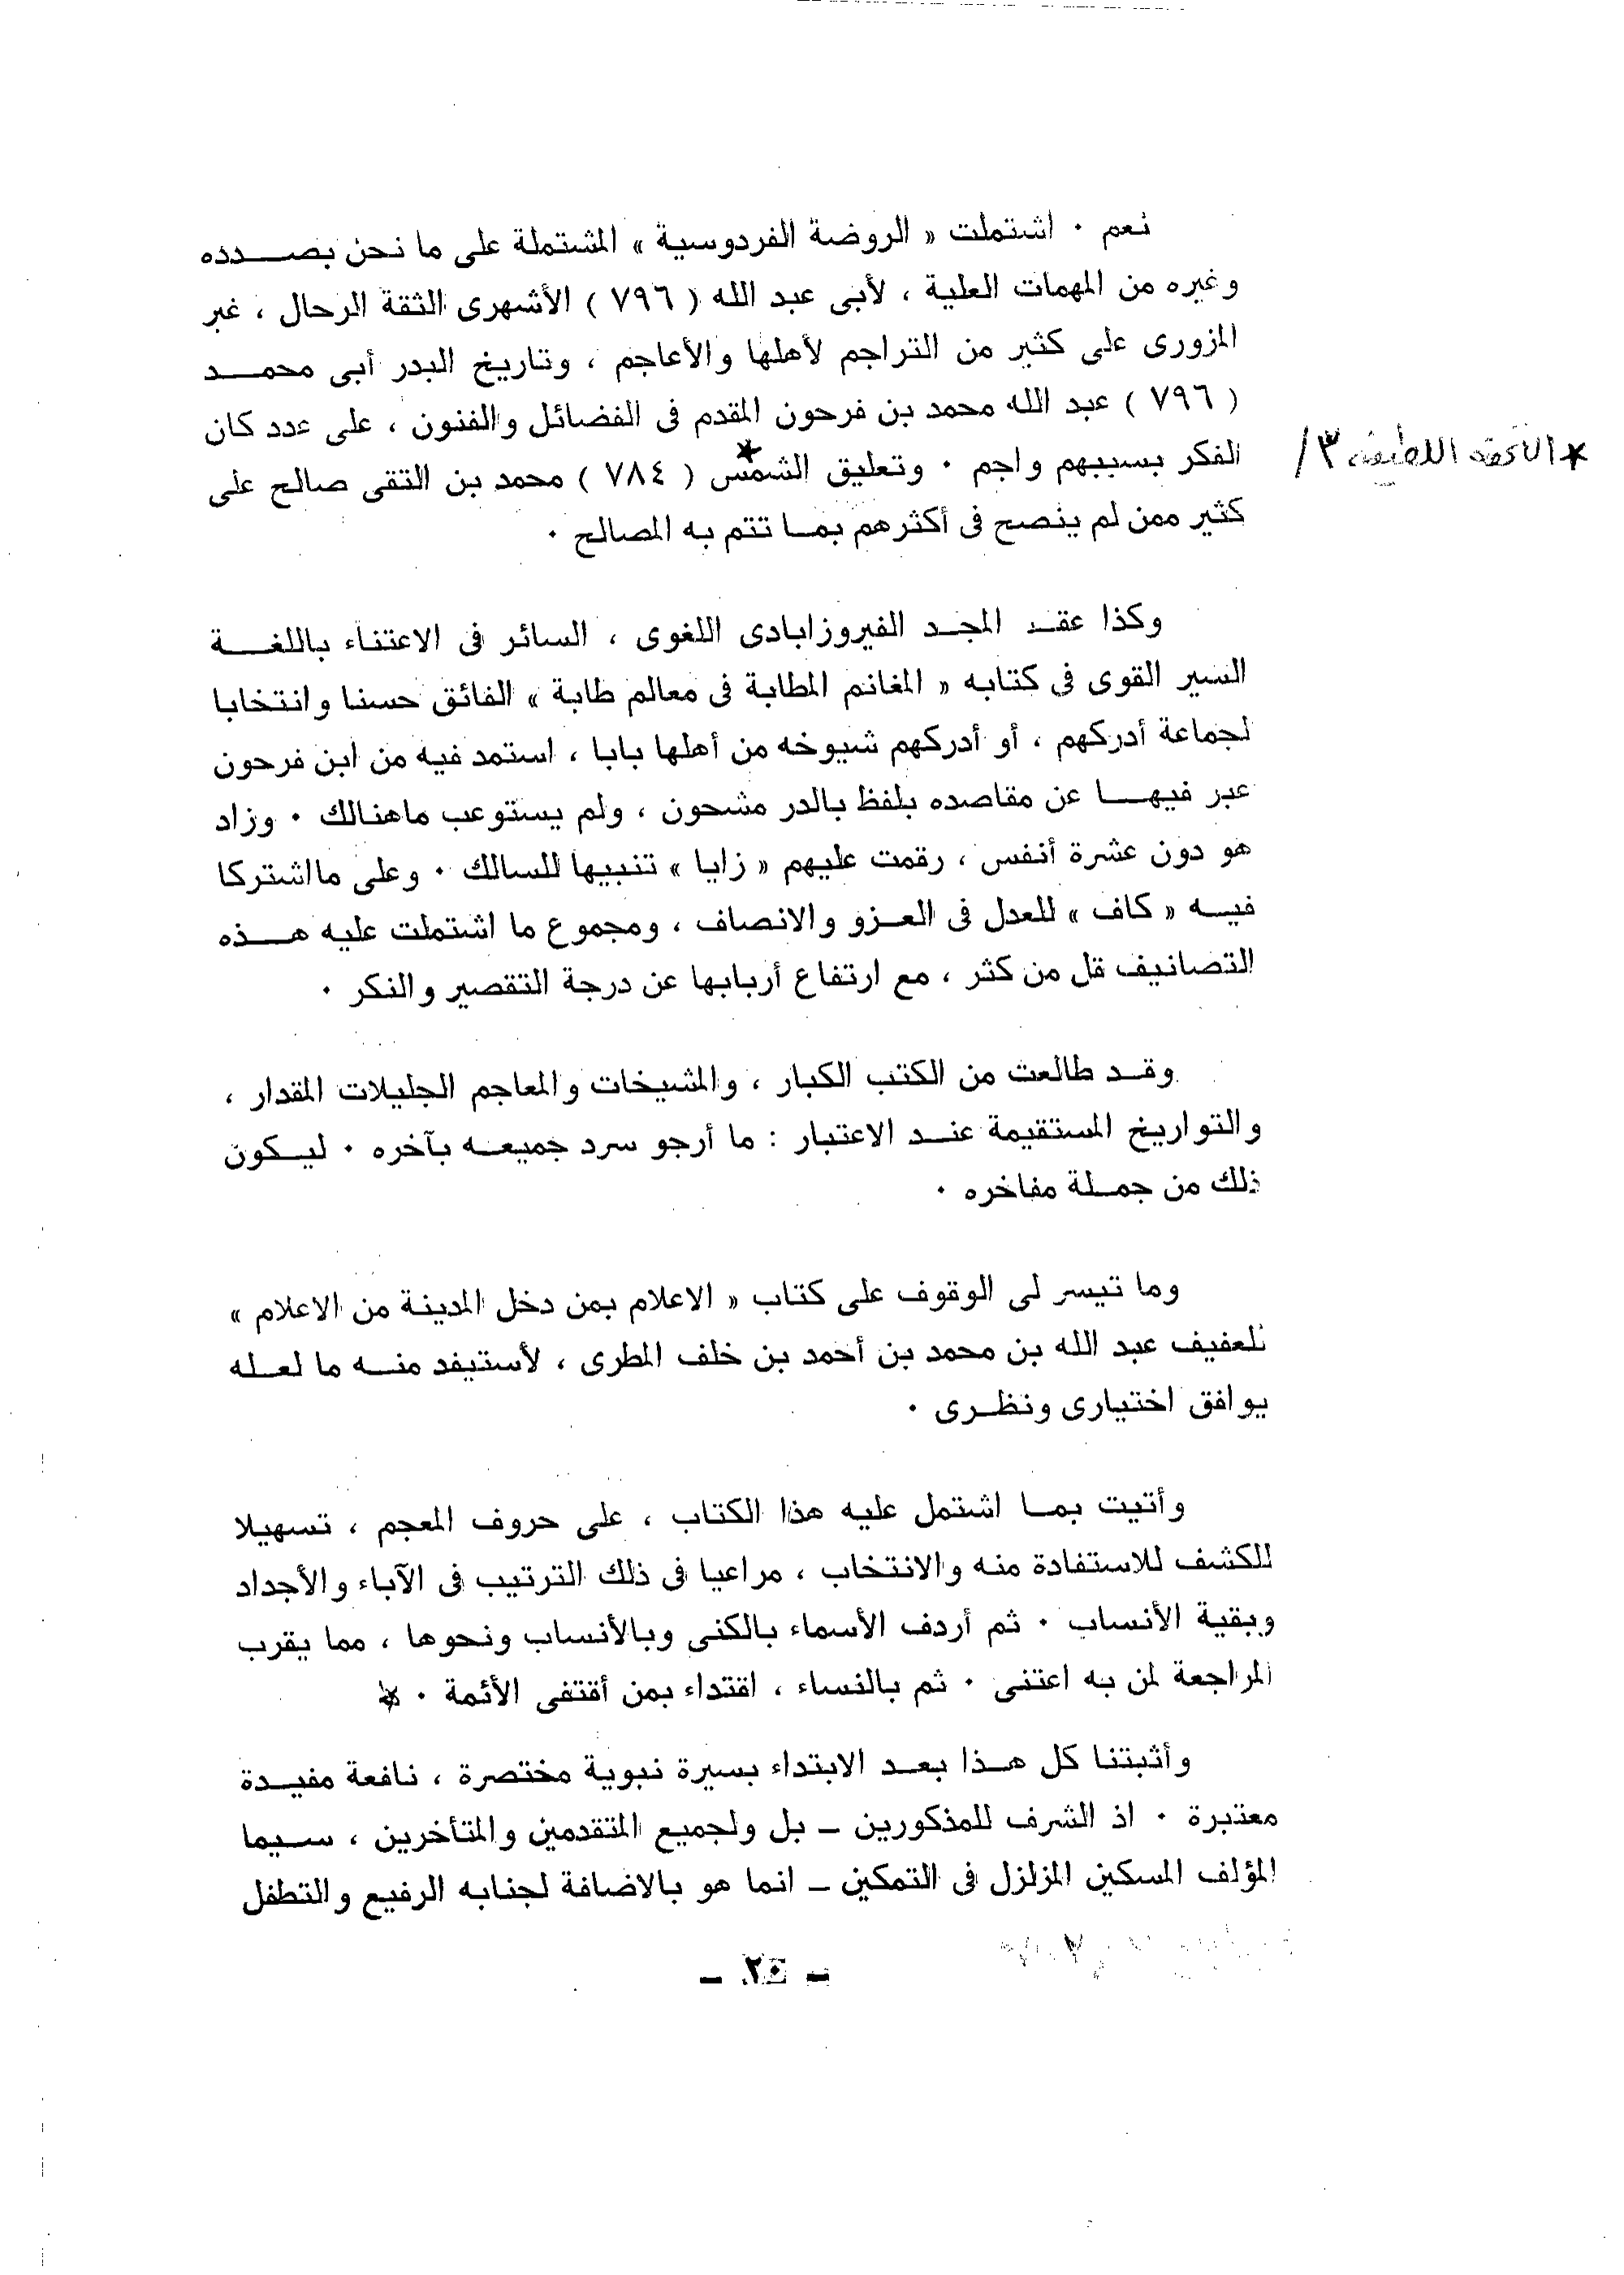 نعم ٠ اشتملت « الروضة الفردوسية » المشتملة على ما نحن بصدده
وغيره من المهمات العلية ، لأبى عبد الله ( ٧٩٦ ) الأشهرى الثقة الرحال ، غبر
المزورى على كثير من التراجم لأهلها والأعاجم ، وتاريخ البدر أبى محمد
( ٧٩٦ ) عبد الله محمد بن فرحون المقدم فى الفضائل والفنون ، على عدد كان
الفكر بسببهم واجم ٠ وتعليق الشمس* ( ٧٨٤ ) محمد بن التقى صالح على
* اللطيفة ٣/
كثير ممن لم ينصح فى أكثرهم بما تتم به المصالح ٠
وكذا عقد المجد الفيروزابادى اللغوى ، السائر فى الاعتناء باللغة
السير القوى فى كتابه « المغانم المطابة فى معالم طابة » الفائق حسنا وانتخابا
لجماعة أدركهم ، أو أدركهم شيوخه من أهلها بابا ، استمد فيه من ابن فرحون
عبر فيها عن مقاصده بلفظ بالدر مشحون ، ولم يستوعب ماهنالك ٠ وزاد
هو دون عشرة أنفس ، رقمت عليهم « زايا » تنبيها للسالك ٠ وعلى مااشتركا
فيه « كاف » للعدل فى العزو والانصاف ، ومجموع ما اشتملت عليه هذه
التصانيف قل من كثر ، مع ارتفاع أربابها عن درجة التقصير والنكر ٠
وقد طالعت من الكتب الكبار ، والمشيخات والمعاجم الجليلات المقدار ،
والتواريخ المستقيمة عند الاعتبار : ما أرجو سرد جميعه بآخره ٠ ليكون
ذلك من جملة مفاخره ٠
وما تيسر لى الوقوف على كتاب « الاعلام بمن دخل المدينة من الاعلام »
للعفيف عبد الله بن محمد بن أحمد بن خلف المطرى ، لأستيفد منه ما لعله
يوافق اختيارى ونظرى ٠
وأتيت بما اشتمل عليه هذا الكتاب ، على حروف المعجم ، تسهيلا
للكشف للاستفادة منه والانتخاب ، مراعيا فى ذلك الترتيب فى الآباء والأجداد
وبقية الأنساب ٠ ثم أردف الأسماء بالكنى وبالأنساب ونحوها ، مما يقرب
المراجعة لمن به اعتنى ٠ ثم بالنساء ، اقتداء بمن أقتفى الأئمة ٠ *
وأثبتنا كل هذا بعد الابتداء بسيرة نبوية مختصرة ، نافعة مفيدة
معتبرة ٠ اذ الشرف للمذكورين – بل ولجميع المتقدمين والمتأخرين ، سيما
المؤلف المسكين المزلزل فى التمكين – انما هو بالاضافة لجنابه الرفيع والتطفل